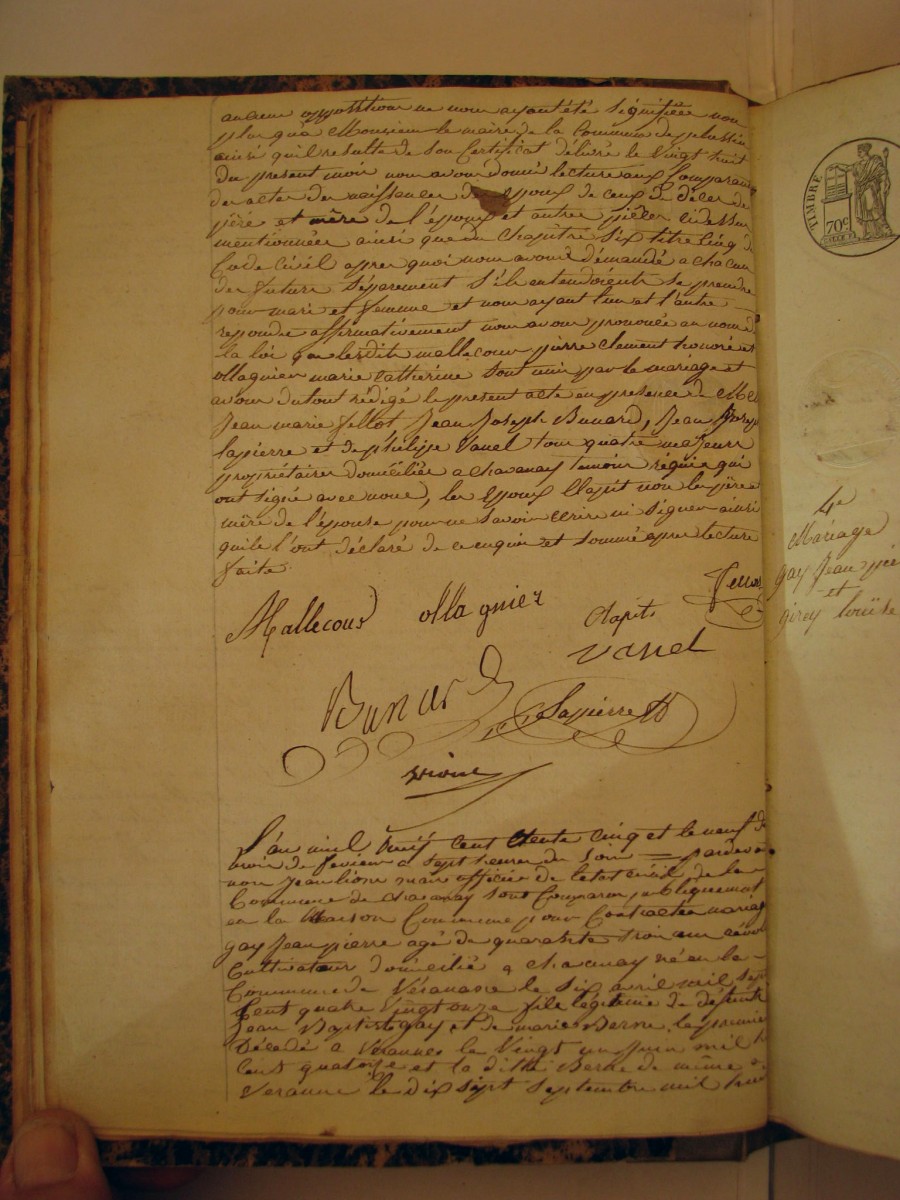 aucune opposition ne nous ayant été signifiée non
plus qu'à Monsieur le maire de la Commune de pelussin
ainsi qu'il resulte de son Certificat délivré le vingt huit
du present mois nous avons donné lecture aux Comparans
des actes de naissances des Epoux de ceux de décès des
père et mère de l'époux et autres pièces ci dessus
mentionnées ainsi que du Chapitre Six titre Cinq du
Code Civil apres quoi nous avons demandé a chacun
des futurs Séparement S'ils entendoients Se prendre
pour mari et femme et nous ayant l'un et l'autre
repondu affirmativement nous avons prononcé au nom de
la loi que lesdits mallecour pierre clement honoré et
ollagnier marie Catherine Sont unis par le mariage et
avons du tout rédigé le present acte en presence de MM
Jean marie fellot, Jean Joseph Bunard, Jean Joseph
lapierre et de philippe Vanel tous quatre majeurs
propriétaires domiciliés a chavanay temoins réquis qui
ont signé avec nous, les Epoux Clapit non les père
mère de l'épouse pour ne savoir écrire ni Signer ainsi
qu'ils l'ont déclaré de ce enquis et sommé apres lecture
faite
Mallecour ollagnier Clapit fellot
Vanel
Bunard Lapierre
Lionc
L'an mil huit Cent trente Cinq et le neuf du
mois de fevrier a sept heures du soir = pardevant
nous Jean lionc maire officier de l'état civil de la
Commune de chavanay sont Comparus publiquement
en la Maison Commune pour Contracter mariage
gay Jean pierre agé de quarante trois ans révolus
Cultivateur domicilié a chavanay né en la
Commune de Véranne le Six avril mil sept
Cent quatre vingt onze fils légitime de défunts
Jean Baptiste gay et de marie Berne, le premier
Décédé a Verannes le vingt un Juin mil h
Cent quatorze et la ditte Berne de même a
Veranne le dix sept Septembre mil huit
TIMBRE
70c
4e
Mariage
gay Jean pie
et
girey louise